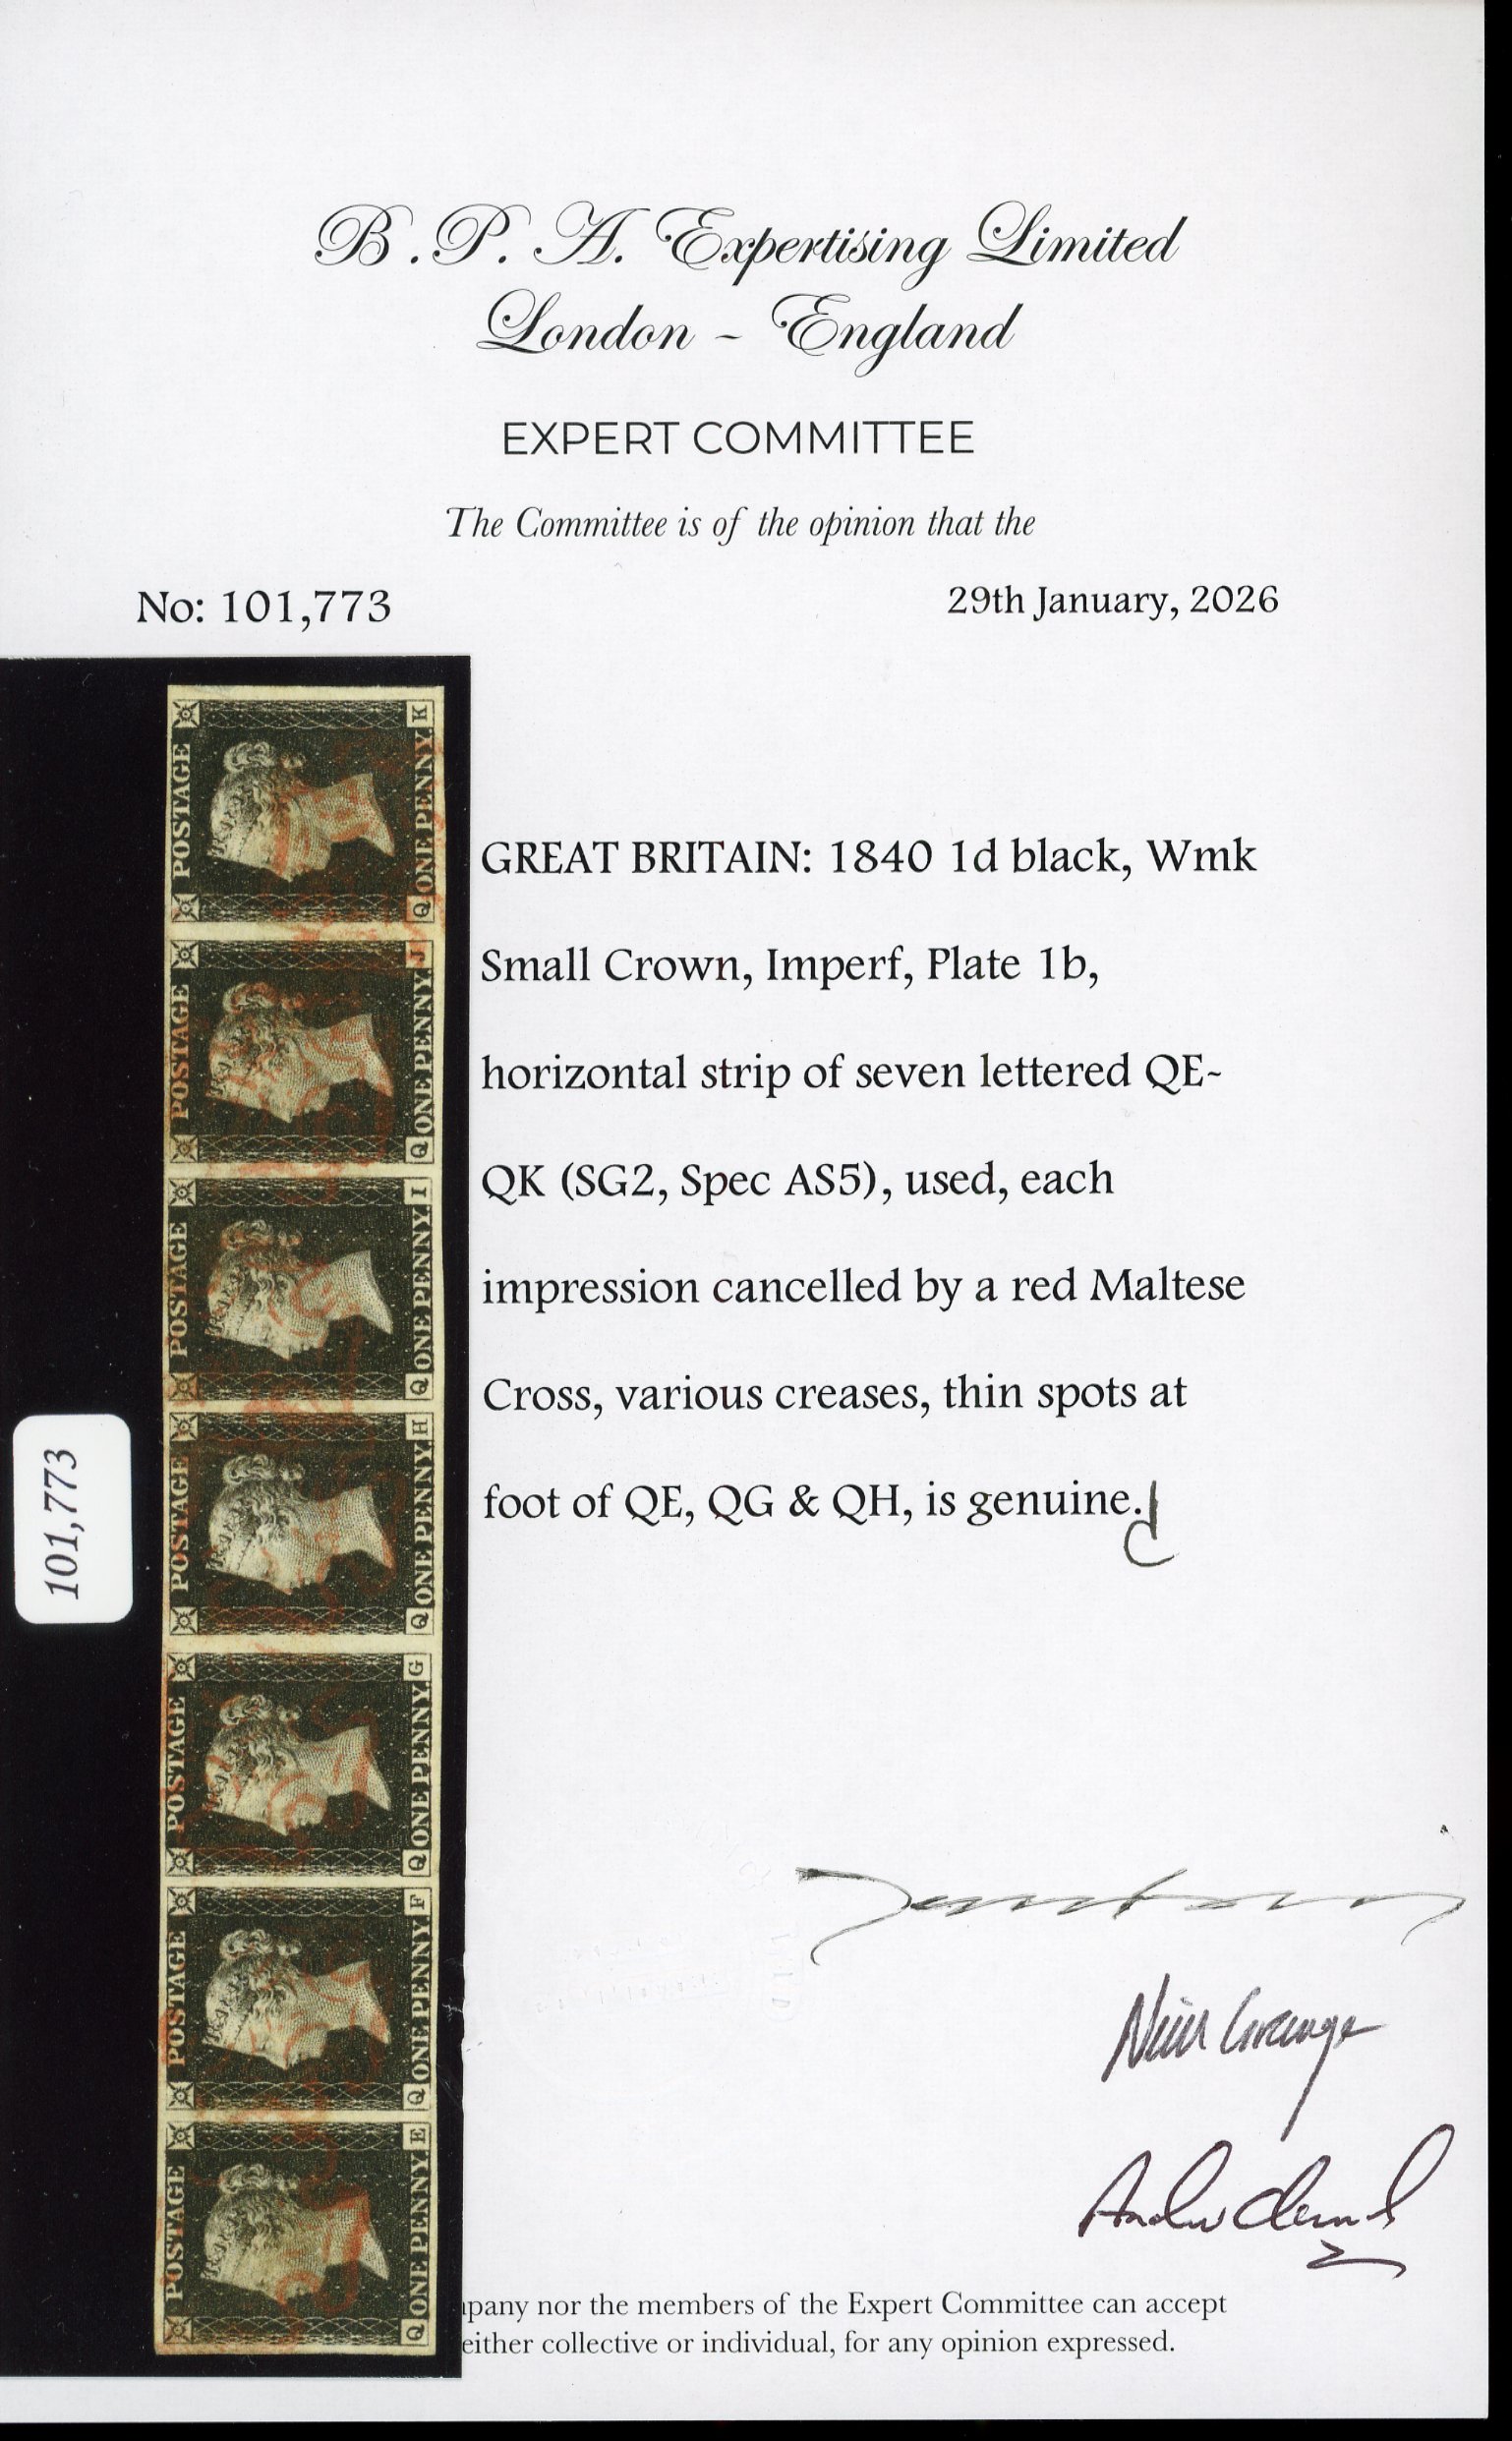 B.P.A. Expertising Limited
London - England
EXPERT COMMITTEE
The Committee is of the opinion that the
No: 101,773
29th January, 2026
GREAT BRITAIN: 1840 1d black, Wmk
Small Crown, Imperf, Plate 1b,
horizontal strip of seven lettered QE-
QK (SG2, Spec AS5), used, each
impression cancelled by a red Maltese
Cross, various creases, thin spots at
foot of QE, QG & QH, is genuine.
101,773
POSTAGE
Q ONE PENNY. E
POSTAGE
Q ONE PENNY. F
POSTAGE
Q ONE PENNY. G
POSTAGE
Q ONE PENNY. H
POSTAGE
Q ONE PENNY. I
POSTAGE
Q ONE PENNY. J
POSTAGE
Q ONE PENNY. K
nor the members of the Expert Committee can accept
either collective or individual, for any opinion expressed.